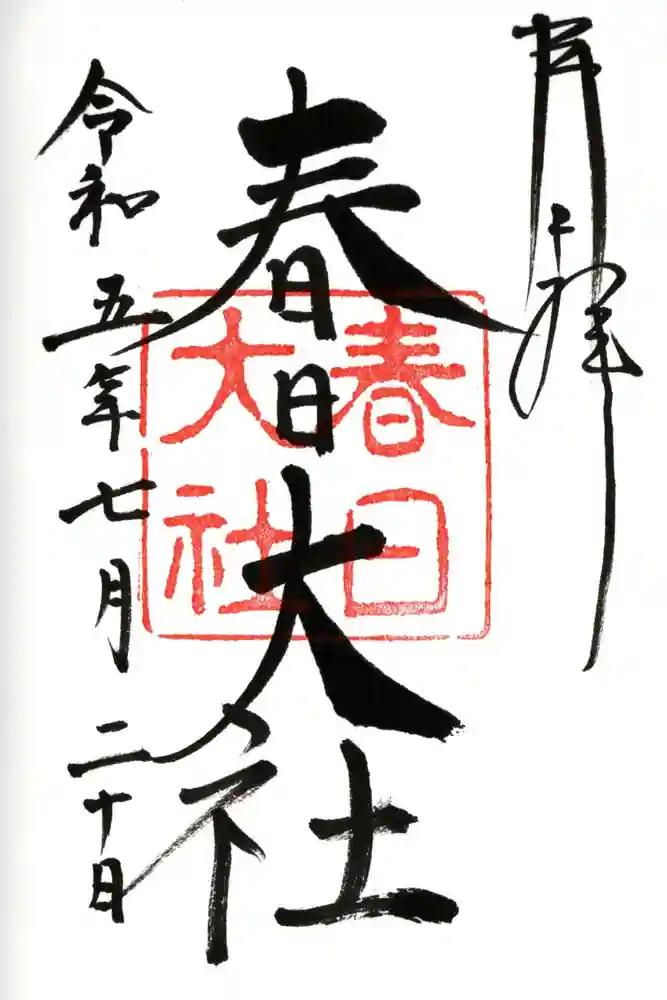 春日大社
令和五年七月二十日
春日
大社